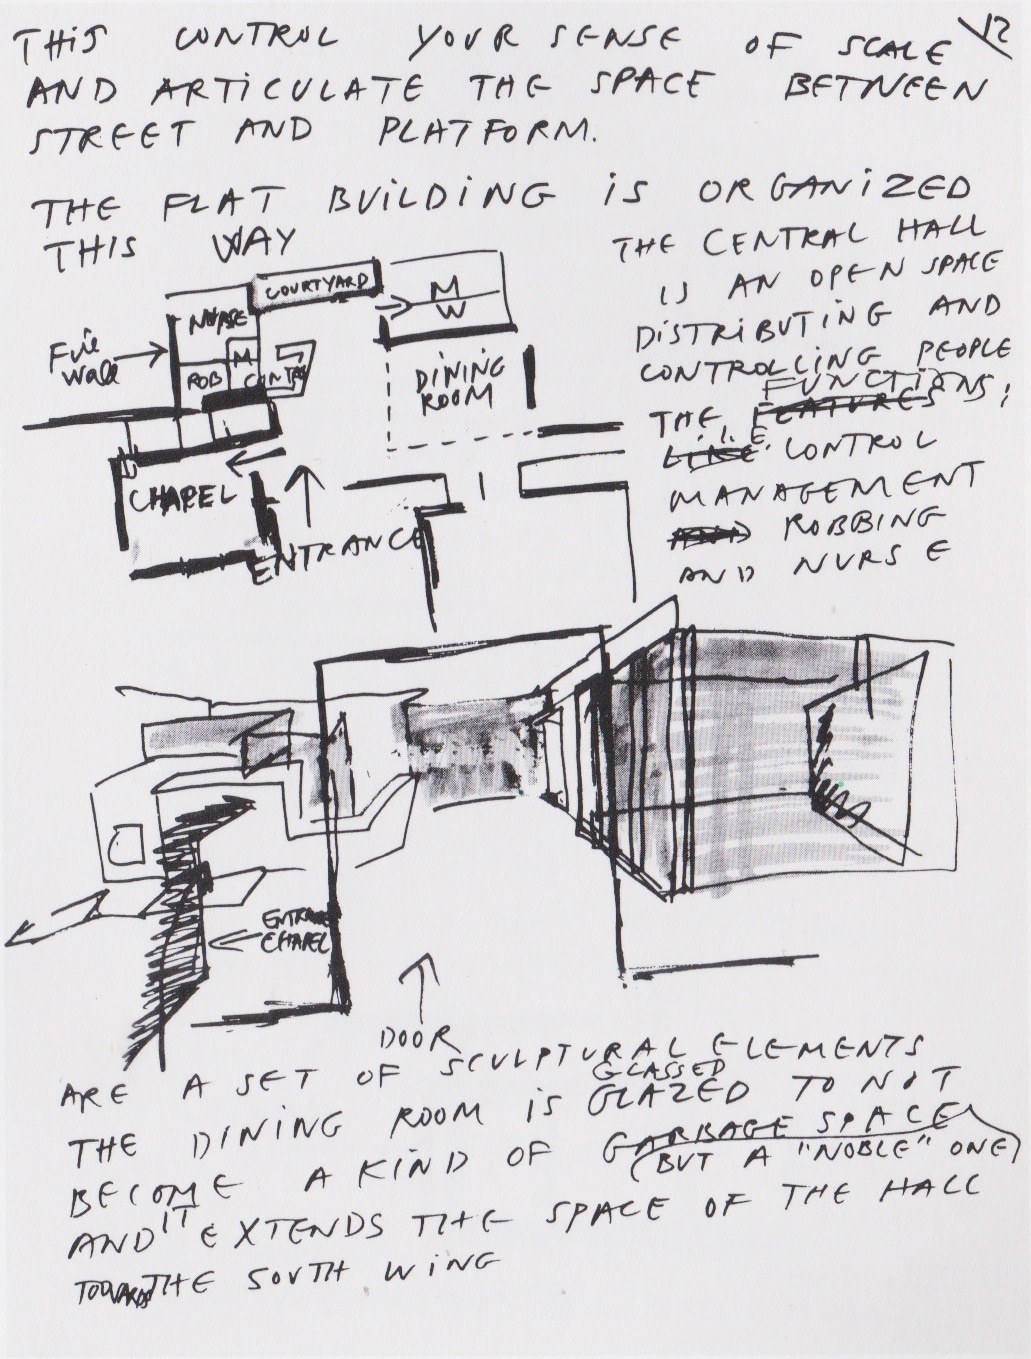 12
THIS CONTROL YOUR SENSE OF SCALE
AND ARTICULATE THE SPACE BETWEEN
STREET AND PLATFORM.
THE FLAT BUILDING IS ORGANIZED
THIS WAY
COURTYARD
NURSE
M
W
Fire
wall
ROB
M
CONTR
DINING
ROOM
CHAPEL
ENTRANCE
THE CENTRAL HALL
IS AN OPEN SPACE
DISTRIBUTING AND
CONTROLLING PEOPLE
FUNCTIONS;
THE FEATURES
LIKE I.E. CONTROL
MANAGEMENT
AND ROBBING
AND NURSE
ENTRANCE
CHAPEL
DOOR
ARE A SET OF SCULPTURAL ELEMENTS
GLASSED
THE DINING ROOM IS GLAZED TO NOT
BECOME A KIND OF GARBAGE SPACE
(BUT A "NOBLE" ONE)
AND IT EXTENDS THE SPACE OF THE HALL
TOWARDS THE SOUTH WING